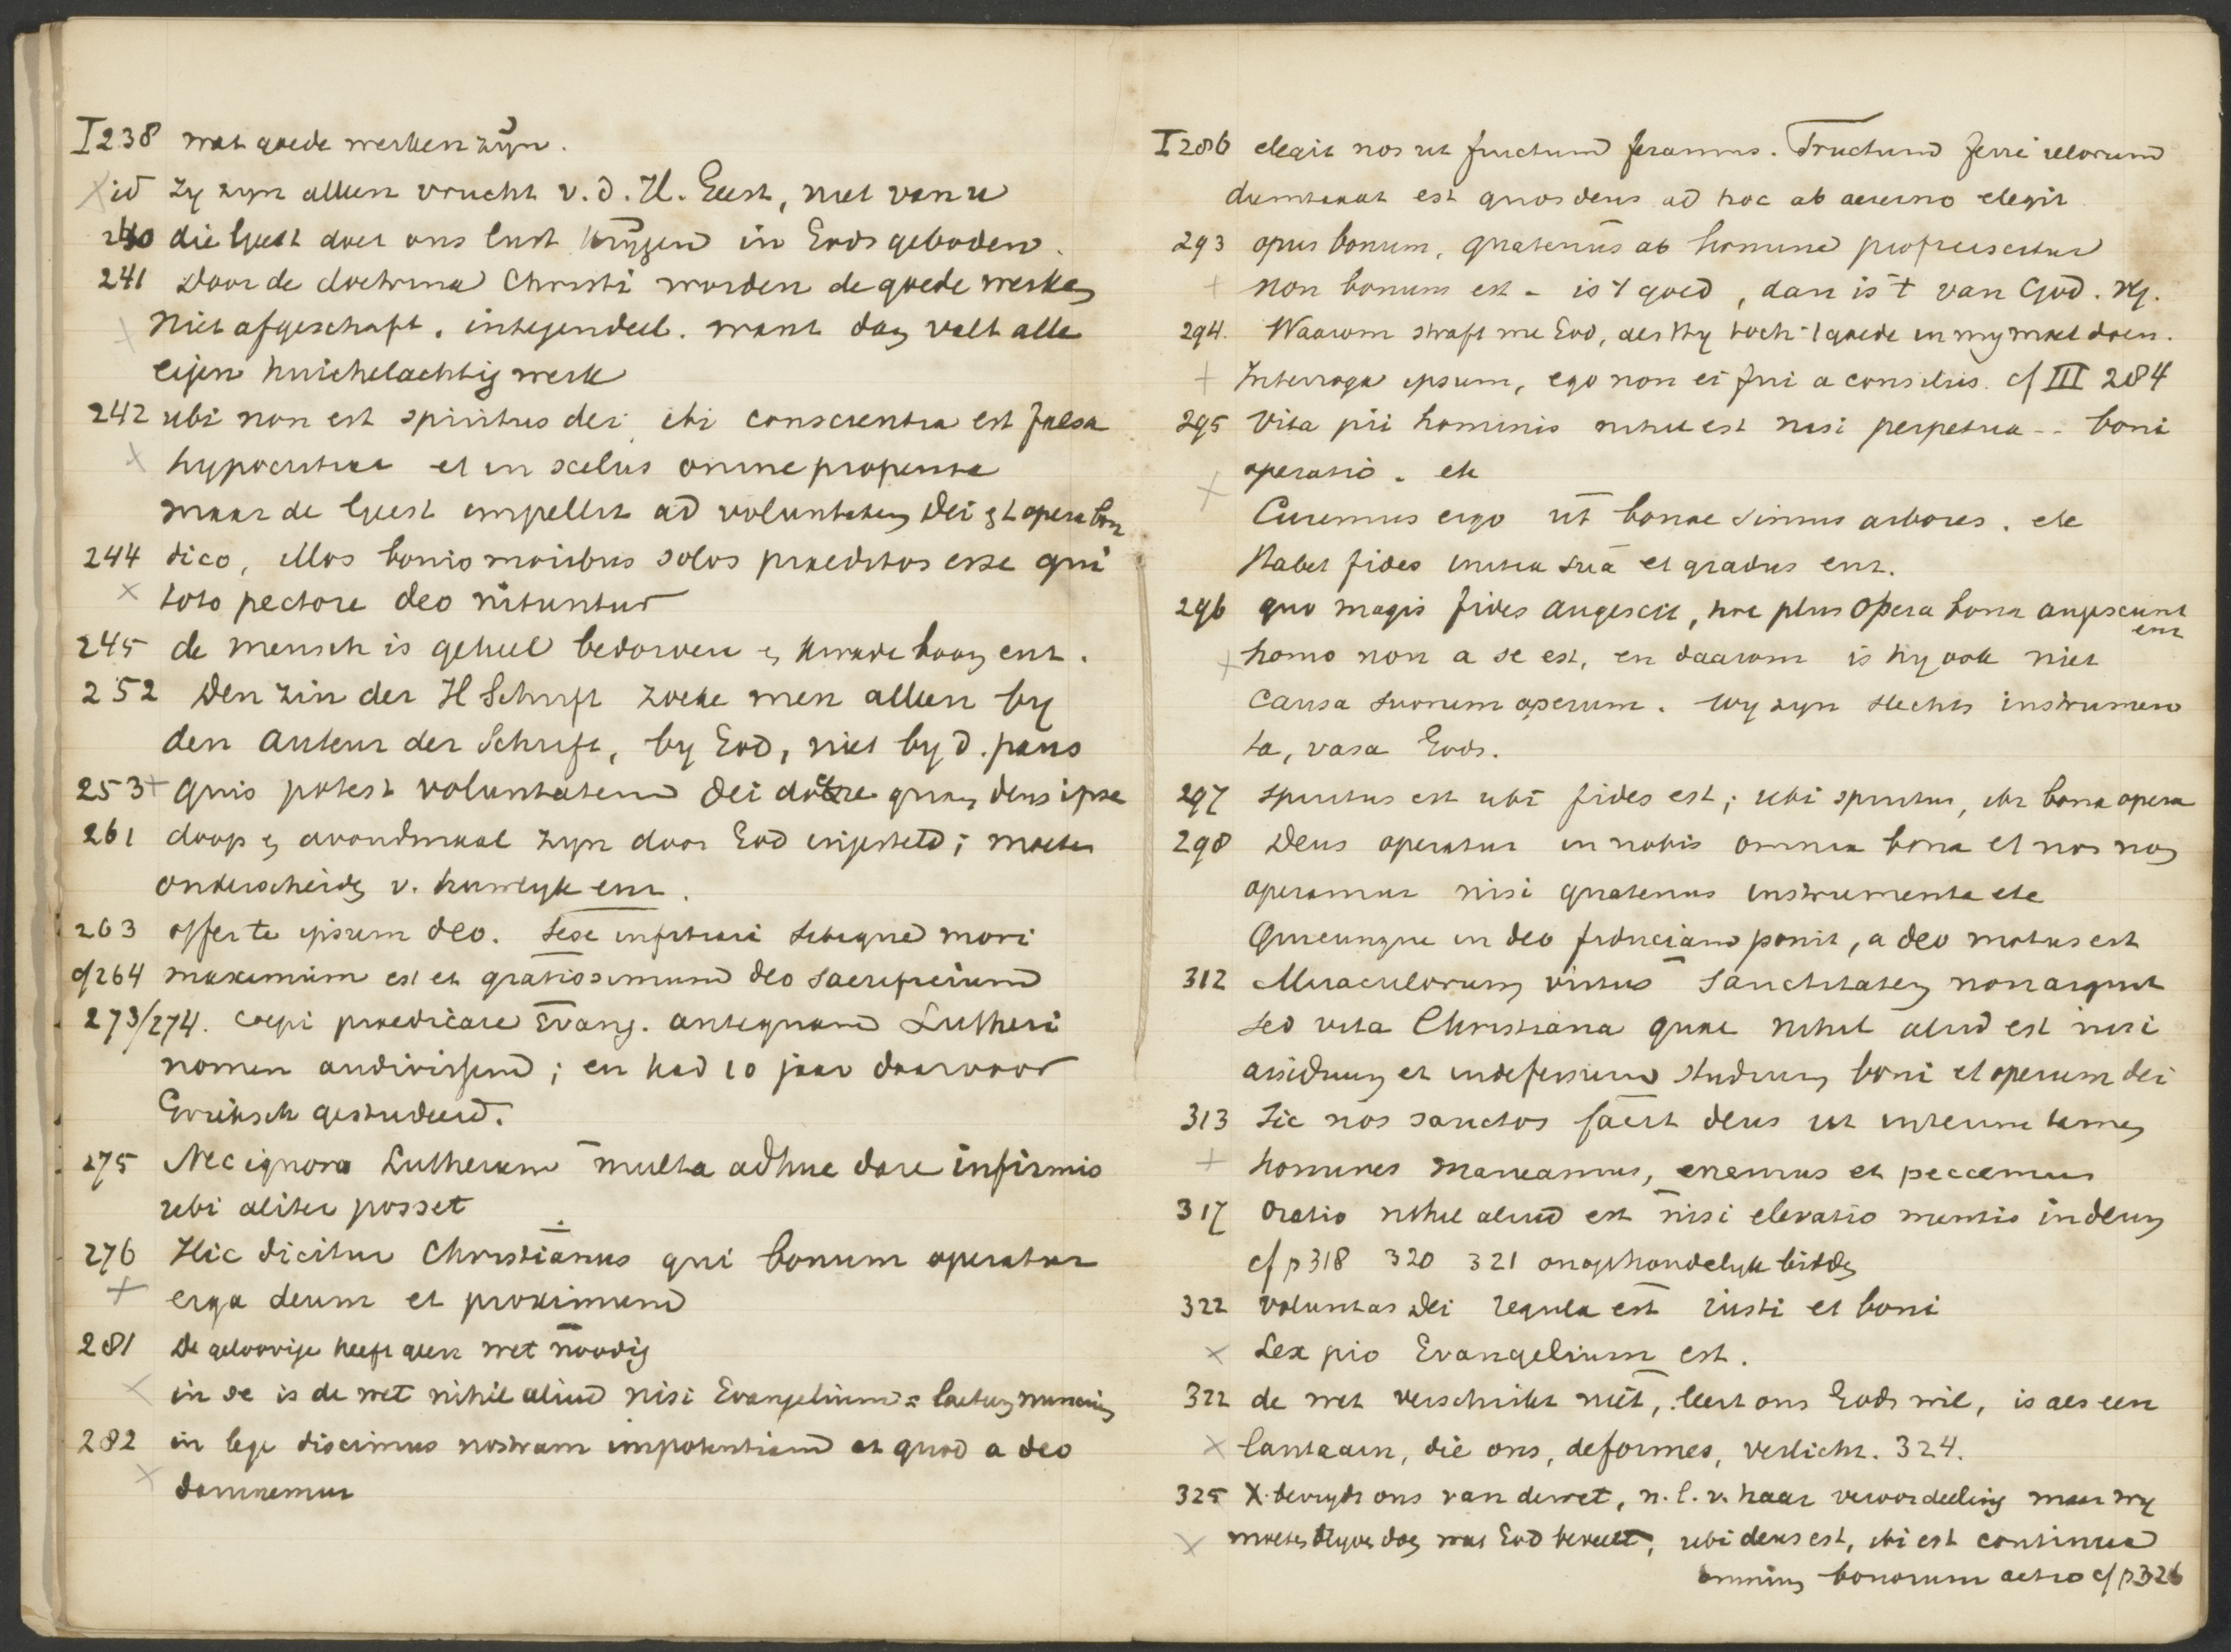 I 238 wat goede werken zijn.
id zy zyn alleen vrucht v. d. H. Geest, niet van u
240 die Geest doet ons lust krijgen in Gods geboden.
241 Door de doctrina Christi worden de goede werken
niet afgeschaft. integendeel. want dan valt alle
eigen huichelachtig werk
242 ubi non est spiritus dei, ibi conscientia est falsa
hypocritica et in scelus omne propensa
maar de Geest impellit ad voluntatem Dei et opera bon
244 dico, illos bonis moribus solos praeditos esse qui
toto pectore deo nituntur
245 de mensch is geheel bedorven en kwade boom enz.
252 Den zin der H Schrift zoeke men alleen by
den Auteur der Schrift, by God, niet by d. paus
253 + quis potest voluntatem dei docere quam deus ipse
261 doop en avondmaal zyn door God ingesteld; moeten
onderscheiden v. huwelyk enz.
263 offer te ipsum deo. sese infitiari sibique mori
cf 264 maximum est et gratiosimum deo sacrificium
273/274. coepi praedicare Evang. antequam Lutheri
nomen audivissem; en had 10 jaar daarvoor
Grieksch gestudeerd.
275 Nec ignora Lutherum multa adhuc dare infirmis
ubi aliter posset
276 Hic dicitur Christianus qui bonum operatur
+ erga deum et proximum
281 De geloovige heeft geen wet noodig
in se is de wet nihil aliud nisi Evangelium = laetum nuncium
282 in lege discimus nostram impotentiam et quod a deo
damnemur
I 286 elegit nos ut fructum feramus. Fructum ferre illorum
dumtaxat est quos deus ad hoc ab aeterno elegit
293 opus bonum, quatenus ab homine proficiscitur
+ non bonum est - is 't goed, dan is 't van God.
294. Waarom straft me God, als Hy toch 't goede in my moet doen.
+ Interroga ipsum, ego non ei fui a consiliis. cf III 284
295 Vita pii hominis nihil est nisi perpetua -- boni
operatio. etc
Curemus ergo ut bonae simus arbores. etc
Habet fides initia sua et gradus enz.
296 quo magis fides augescit, hoc plus opera bona augescunt
enz
+ homo non a se est, en daarom is hy ook niet
causa suorum operum. wy zyn slechts instrumen
ta, vasa Gods.
297 Spiritus est ubi fides est; ubi spiritus, ibi bona opera
298 Deus operatur in nobis omnia bona et nos non
operamur nisi quatenus instrumenta etc
Quicunque in deo fiduciam ponit, a deo motus est
312 Miraculorum virtus sanctitatem non arguit
sed vita Christiana quae nihil aliud est nisi
assiduum et indefessum studium boni et operum dei
313 Sic nos sanctos facit deus ut interim tamen
+ homines maneamus, erremus et peccemus
317 Oratio nihil aliud est nisi elevatio mentis in deum
cf p 318 320 321 onophoudelyk bidden
322 voluntas Dei regula est iusti et boni
x Lex pio Evangelium est.
322 de wet verschrikt niet, leert ons Gods wil, is als een
x lantaarn, die ons, deformes, verlicht. 324.
325 X. bevrydt ons van de wet, n.l. v. haar veroordeeling maar wy
x moeten blyven doen wat God beveelt, ubi deus est, ibi est continua
omnium bonorum actio cf p 326